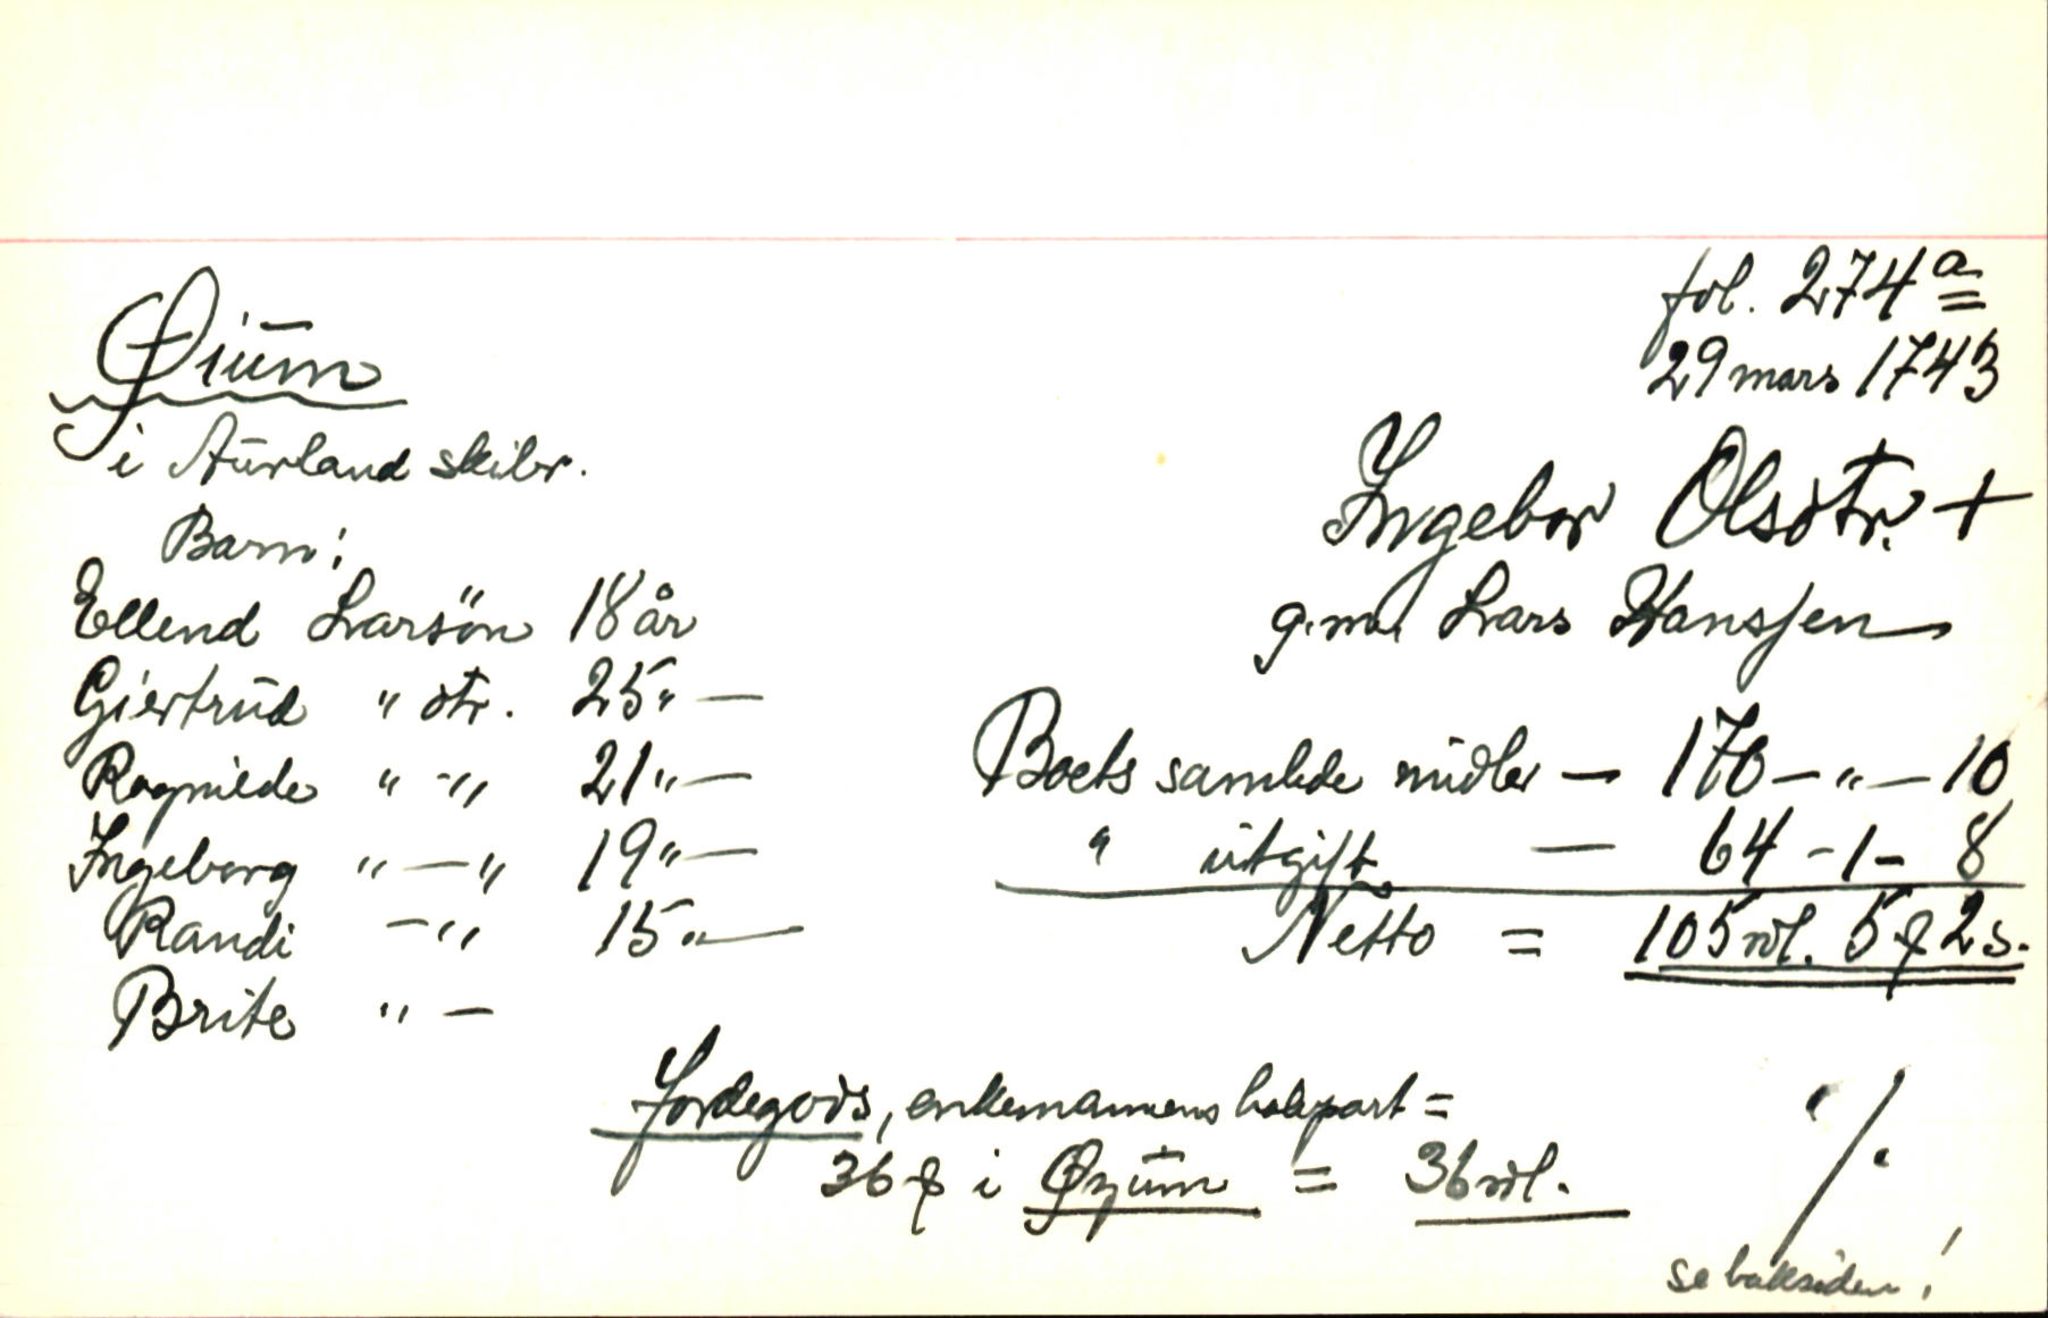 fol. 274a
29 mars 1743
Øium
i Aurland skibr.
Ingebor Olsdtr. +
g.m. Lars Hanssen
Barn:
Ellend Larsøn 18 år
Giertrud " dtr. 25 " —
Ragnilde " - " 21 " —
Ingeborg " — " 19 " —
Randi - " 15 " —
Brite " —
Boets samlede midler — 170 — " — 10
" utgift — 64 - 1 - 8
Netto = 105 rdl. 5 ƒ 2 s.
Jordegods, enkemannens halvpart =
36 ƒ i Øyum = 36 rdl.
./.
se baksiden!